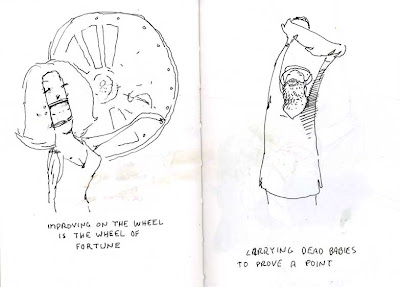 IMPROVING ON THE WHEEL
IS THE WHEEL OF
FORTUNE
CARRYING DEAD BABIES
TO PROVE A POINT